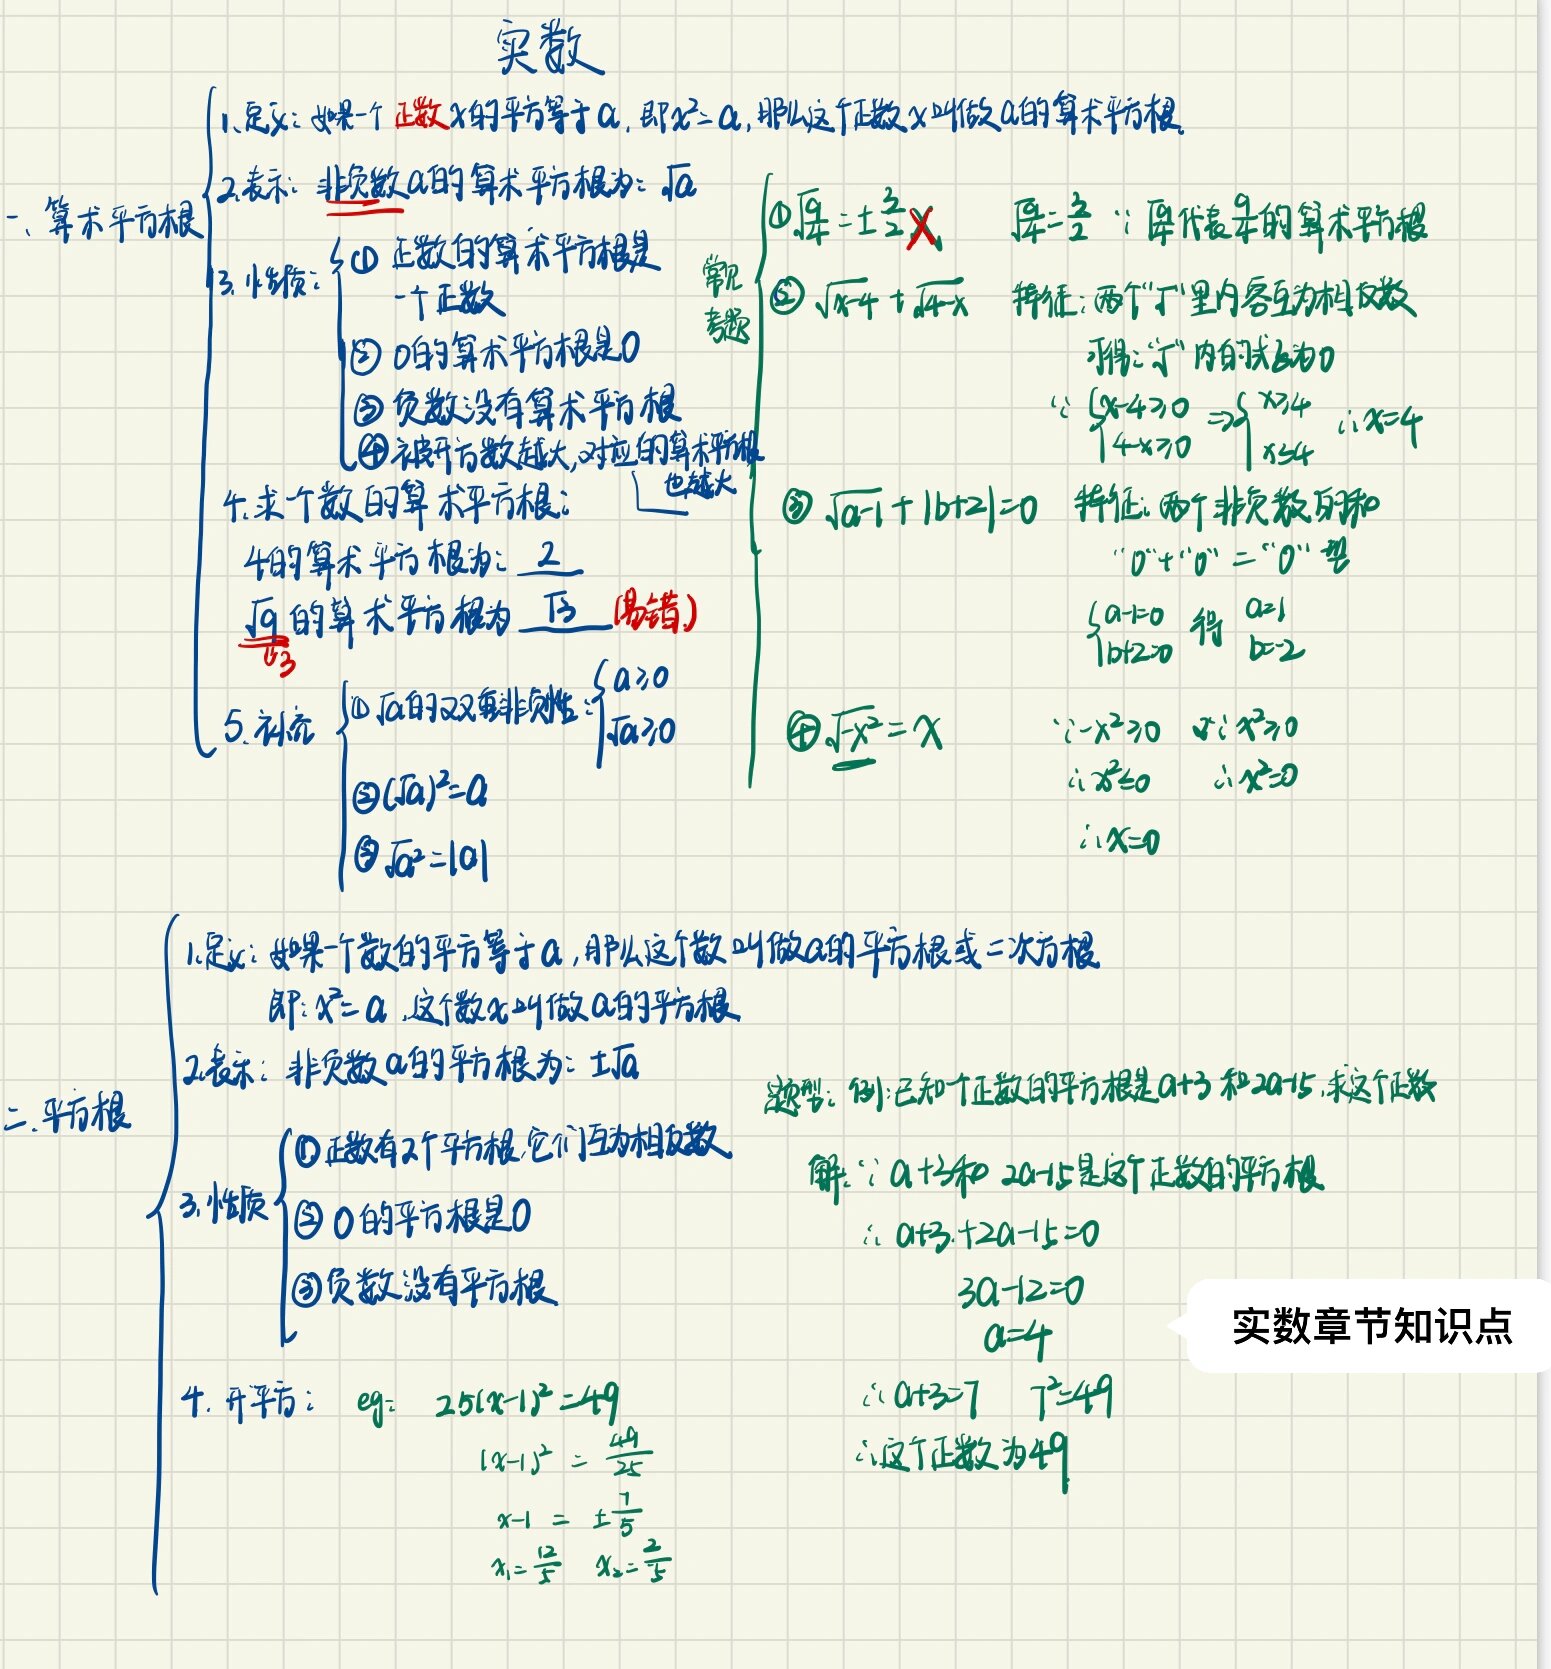 实数
一、算术平方根
1.定义：如果一个正数x的平方等于a，即x²=a，那么这个正数x叫做a的算术平方根
2.表示：非负数a的算术平方根为：√a
3.性质：
① 正数的算术平方根是
一个正数
② 0的算术平方根是0
③ 负数没有算术平方根
④ 被开方数越大，对应的算术平方根
也越大
4.求一个数的算术平方根：
4的算术平方根为：2
√9的算术平方根为 √3 (易错)
3
5.补充
①√a的双重非负性：{a≥0
√a≥0
②(√a)²=a
③√a²=|a|
常见
考题
①√9/4=±3/2 × √9/4=3/2 ∵√9/4代表9/4的算术平方根
②√x-4+√4-x 特征：两个“√”里内容互为相反数
可得：“√”内的式子为0
∵{x-4≥0 ⇒{x≥4 ∴x=4
4-x≥0 x≤4
③√a-1+|b+2|=0 特征：两个非负数的和
“0”+“0”=“0”型
{a-1=0 得 a=1
b+2=0 b=-2
④√-x²=x ∵-x²≥0 又∵x²≥0
∴x²≤0 ∴x²=0
∴x=0
二.平方根
1.定义：如果一个数的平方等于a，那么这个数叫做a的平方根或二次方根
即：x²=a，这个数x叫做a的平方根
2.表示：非负数a的平方根为：±√a
3.性质
①正数有2个平方根，它们互为相反数
②0的平方根是0
③负数没有平方根
4.开平方：eg： 25(x-1)²=49
(x-1)²=49/25
x-1=±7/5
x₁=12/5 x₂=-2/5
题型：例：已知一个正数的平方根是a+3和2a-15，求这个正数
解：∵a+3和2a-15是这个正数的平方根
∴a+3+2a-15=0
3a-12=0
a=4
∴a+3=7 7²=49
∴这个正数为49
实数章节知识点